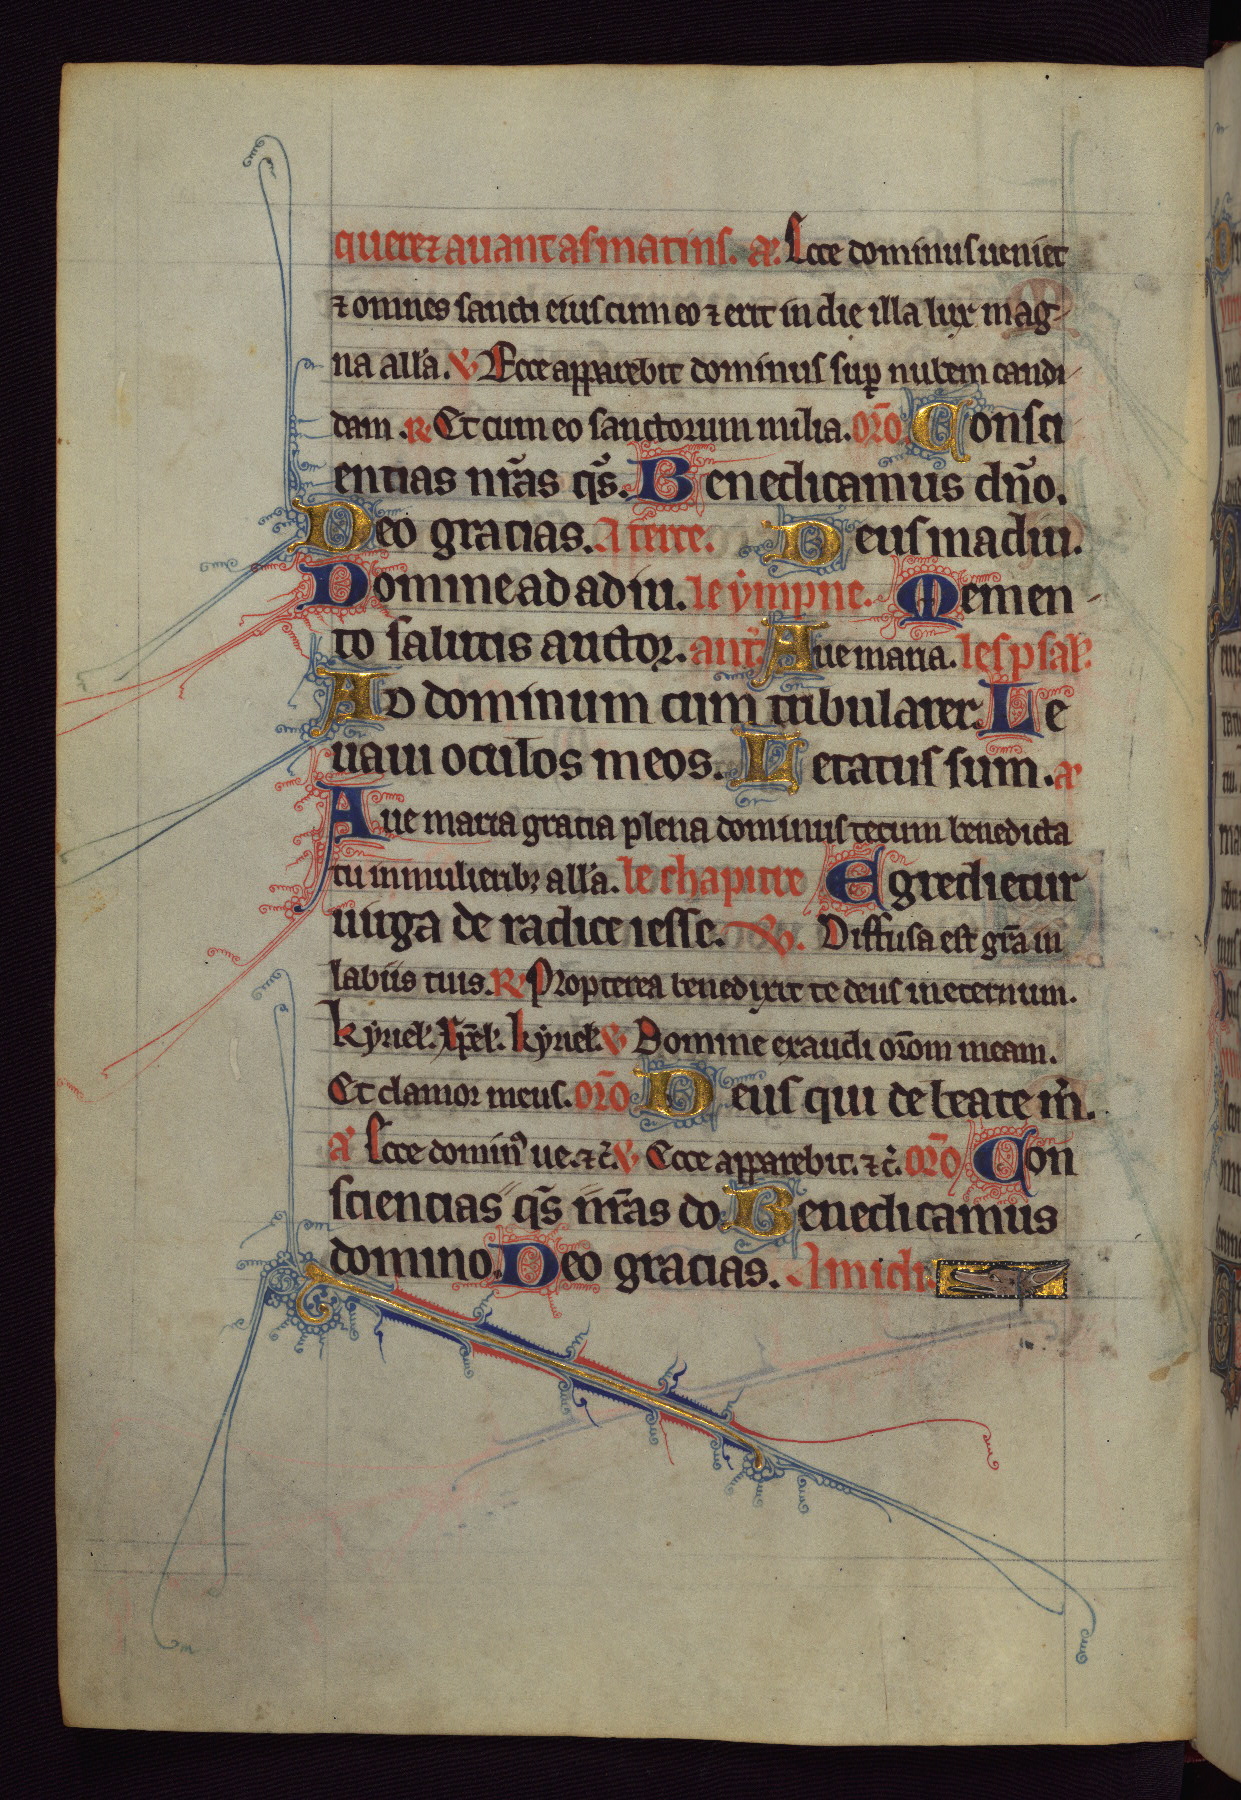 querez auant as matins. a͞. Ecce dominus ueniet
⁊ omnes sancti eius cum eo ⁊ erit in die illa lux mag-
na all'a. V Ecce apparebit dominus sup̱ nubem candi-
dam. R. Et cum eo sanctorum milia. or̄o Consci
encias nr̄as q̄s. Benedicamus dn̄o.
Deo gracias. A terce. Deus in adiu.
Domine ad adiu. le ympne. Memen-
to salutis auctor. ant̄. Aue maria. les psal'.
Ad dominum cum tribularer. Le
uaui oculos meos. Letatus sum. a͞
Aue maria gracia plena dominus tecum benedicta
tu in mulieribꝫ all'a. le chapitre Egredietur
uirga de radice iesse. V. Diffusa est gr̄a in
labiis tuis. R. Propterea benedixit te deus in eternum.
kyriel'. xp̄el'. kyriel'. V Domine exaudi or̄om meam.
Et clamor meus. or̄o Deus qui de beate m̄.
a͞ Ecce dominꝰ ue. ⁊c̄. V Ecce apparebit. ⁊c̄. or̄o Con
sciencias q̄s nr̄as do. Benedicamus
domino. Deo gracias. A midi.